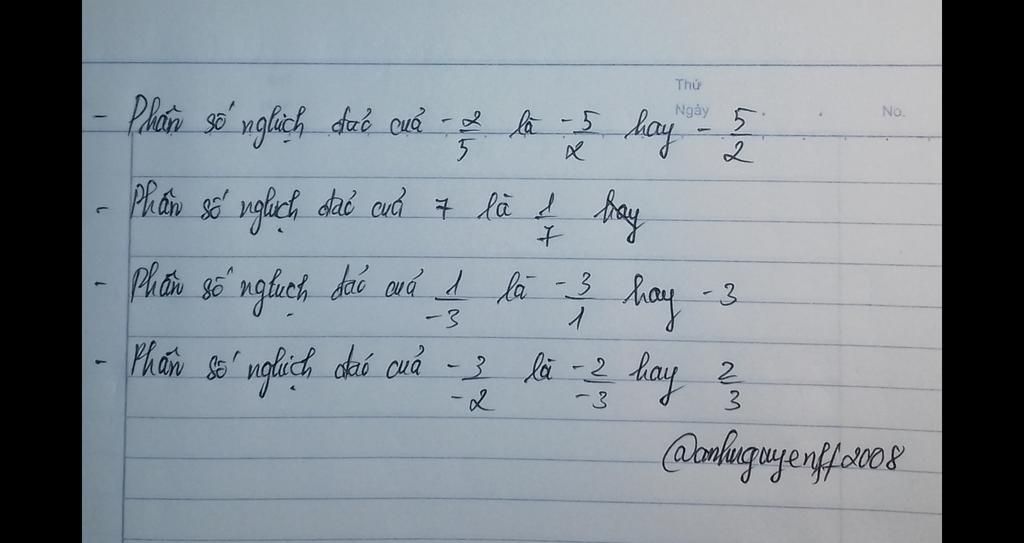 Thứ
Ngày No.
- Phân số nghịch đảo của -2/5 là -5/2 hay - 5/2
- Phân số nghịch đảo của 7 là 1/7 hay
- Phân số nghịch đảo của 1/-3 là -3/1 hay -3
- Phân số nghịch đảo của -3/-2 là -2/-3 hay 2/3
@anhnguyenff2008